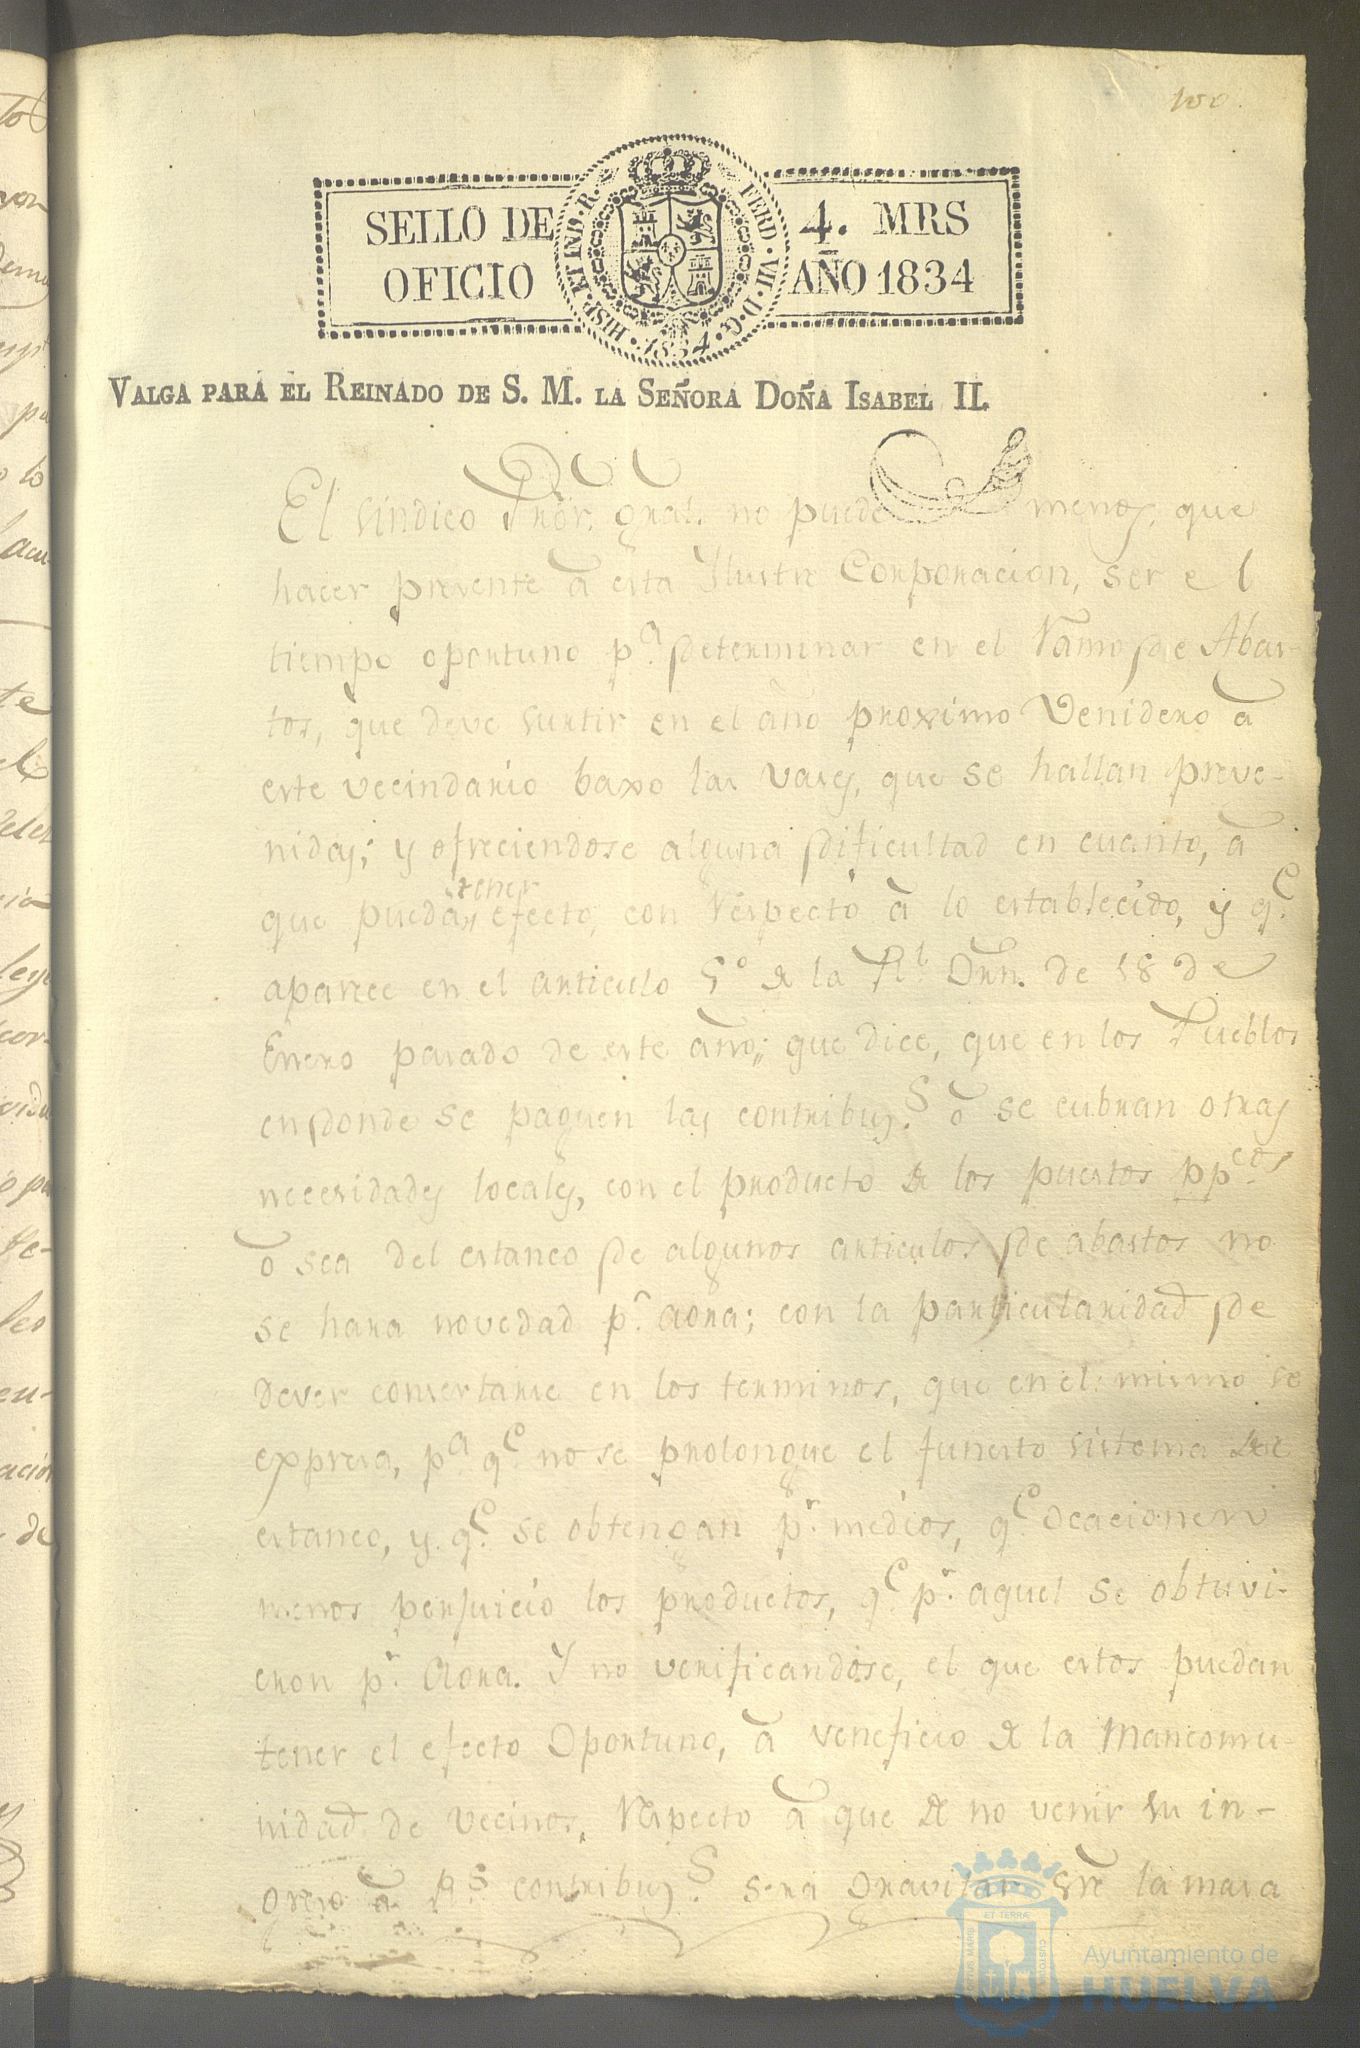 100.
SELLO DE 4. MRS
OFICIO AÑO 1834
HISP. ET IND. R. FERD. VII. D. G. 1834
VALGA PARA EL REINADO DE S. M. LA SEÑORA DOÑA ISABEL II.
El sindico Pror. gral. no puede menos, que
hacer presente â esta Ylustre Corporacion, ser el
tiempo oportuno pª. determinar en el Ramo de Abas-
tos, que deve surtir en el año proximo venidero â
este vecindario baxo las vases, que se hallan preve-
nidas; y ofreciendose alguna dificultad en cuanto, â
tener
que puedan efecto, con respecto â lo establecido, y qe.
aparece en el articulo 5º de la Rl. Orn. de 18 de
Enero pasado de este año; que dice, que en los Pueblos
en donde se paguen las contribus. ô se cubran otras
necesidades locales, con el producto de los puestos ppcos.
ô sea del estanco de algunos articulos de abastos no
se hara novedad pr. aora; con la particularidad de
dever concertarse en los terminos, que en el mismo se
expresa, pa. qe. no se prolongue el funesto sistema de
estanco, y qe. se obtengan pr. medios, qe. ocacionen
menos perjuicio los productos, qe. pr. aquel se obtuvi-
eron pr. Aora. Y no verificandose, el que estos puedan
tener el efecto Oportuno, â veneficio de la Mancomu-
nidad de vecinos, respecto â que de no venir su in-
greso â Rs. contribus. sera gravitar sre. la masa
ET TERRÆ
Ayuntamiento de
HUELVA